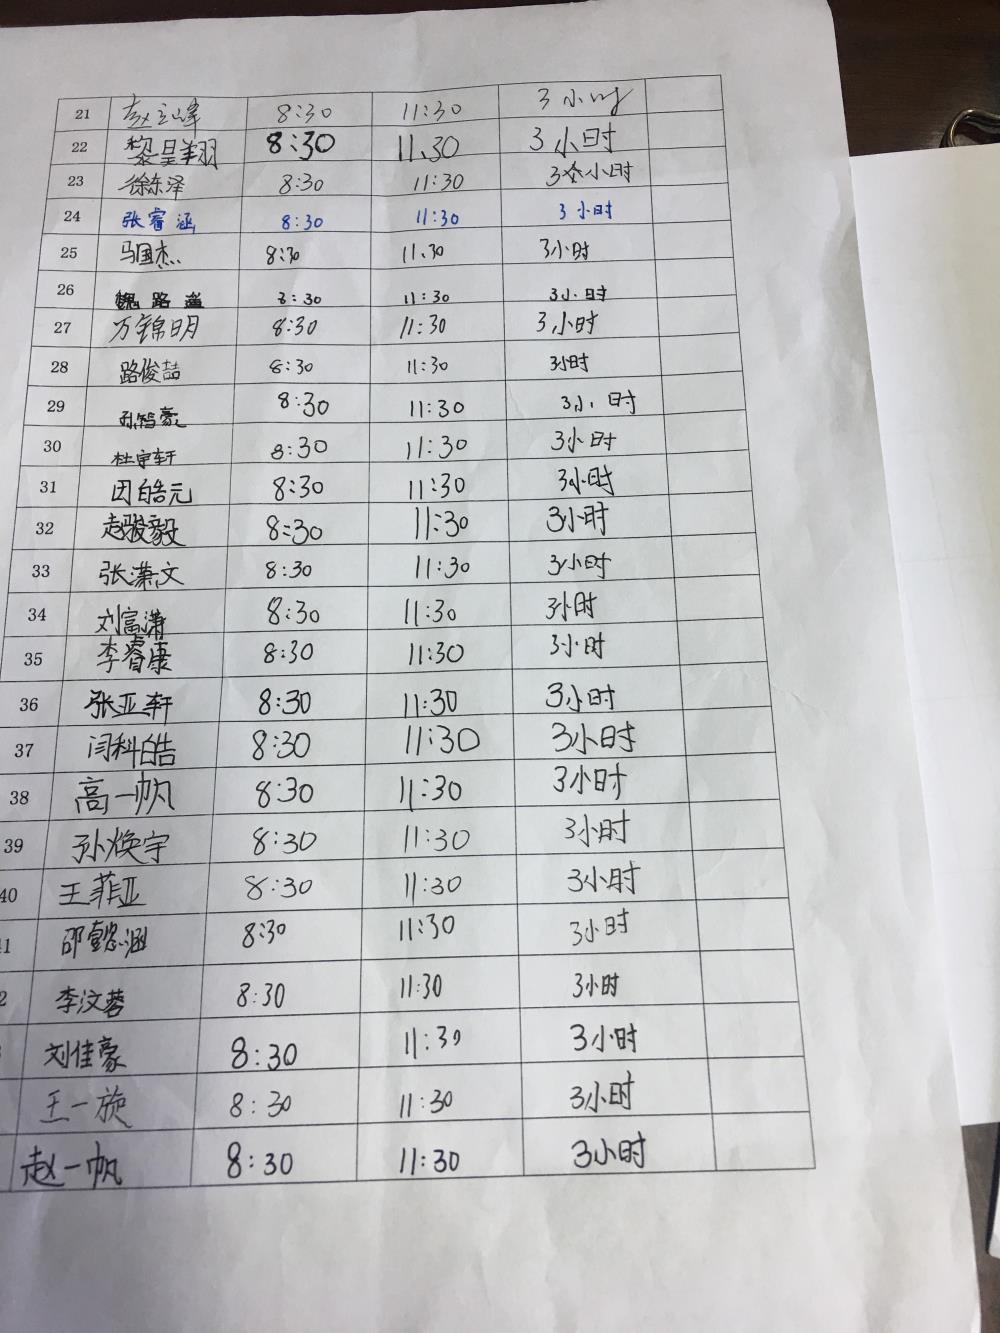 21 赵立峰 8:30 11:30 3小时
22 黎昊翔 8:30 11.30 3小时
23 徐东泽 8:30 11:30 3小时
24 张睿涵 8:30 11:30 3小时
25 马国杰 8:30 11.30 3小时
26 魏路遥 8:30 11:30 3小时
27 万锦明 8:30 11:30 3小时
28 路俊喆 8:30 11:30 3小时
29 孙智豪 8:30 11:30 3小时
30 杜宇轩 8:30 11:30 3小时
31 田皓元 8:30 11:30 3小时
32 赵骏毅 8:30 11:30 3小时
33 张潇文 8:30 11:30 3小时
34 刘富潇 8:30 11:30 3小时
35 李睿康 8:30 11:30 3小时
36 张亚轩 8:30 11:30 3小时
37 闫科皓 8:30 11:30 3小时
38 高一帆 8:30 11:30 3小时
39 孙焕宇 8:30 11:30 3小时
40 王菲亚 8:30 11:30 3小时
1 邵懿涵 8:30 11:30 3小时
2 李汶蓉 8:30 11:30 3小时
刘佳豪 8:30 11:30 3小时
王一旋 8:30 11:30 3小时
赵一帆 8:30 11:30 3小时